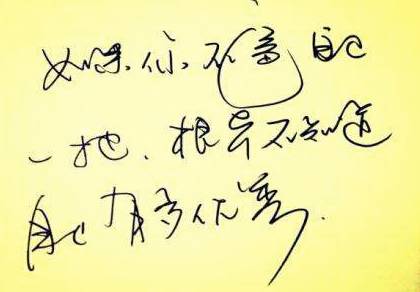 如果你不逼自己
一把,根本不知道
自己有多优秀.